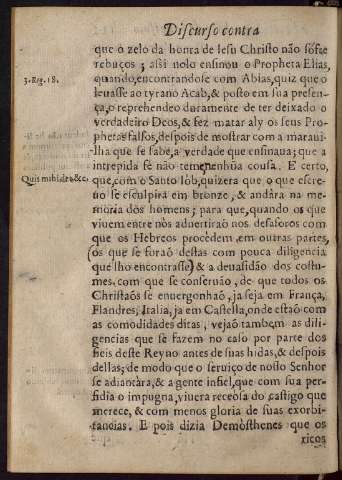 Discurso contra
que o zelo da honra de Iesu Christo não sofre
rebuços; assi nolo ensinou o Propheta Elias,
3. Reg. 18.
quando, encontrandose com Abias, quiz que o
leuasse ao tyrano Acab, & posto em sua presen-
ça, o reprehendeo duramente de ter deixado o
verdadeiro Deos, & fez matar aly os seus Pro-
phetas falsos, despois de mostrar com a maraui-
lha que se sabe, a verdade que ensinaua; que a
intrepida fè não teme nenhũa cousa. E certo,
Quis mihi det &c.
que, com o Santo Iob, quizera que o que escre-
uo se esculpira em bronze, & andàra na me-
moria dos homens; para que, quando os que
viuem entre nòs aduertiraõ nos desaforos com
que os Hebreos procedem, em outras partes,
(os que se foraõ destas com pouca diligencia
que lho encontrasse) & a deuasidão dos costu-
mes, com que se conseruão, de que todos os
Christaõs se enuergonhaõ, ja seja em França,
Flandres, Italia, ja em Castella, onde estaõ com
as comodidades ditas, vejaõ tambem as dili-
gencias que se fazem no caso por parte dos
fieis deste Reyno antes de suas hidas, & despois
dellas; de modo que o seruiço de nosso Senhor
se adiantàra, & a gente infiel, que com sua per-
fidia o impugna, viuera receosa do castigo que
merece, & com menos gloria de suas exorbi-
tancias. E pois dizia Demòsthenes que os
ricos